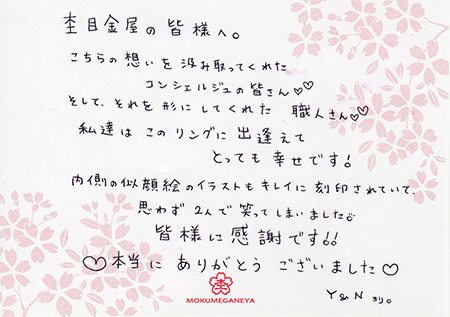 杢目金屋の皆様へ。
こちらの想いを汲み取ってくれた
コンシェルジュの皆さん♡♡
そして、それを形にしてくれた 職人さん♡♡
私達はこのリングに出逢えて
とっても幸せです!
内側の似顔絵のイラストもキレイに刻印されていて、
思わず2人で笑ってしまいました♪
皆様に感謝です!!
♡本当に ありがとう ございました♡
杢
MOKUMEGANEYA
Y&N より。